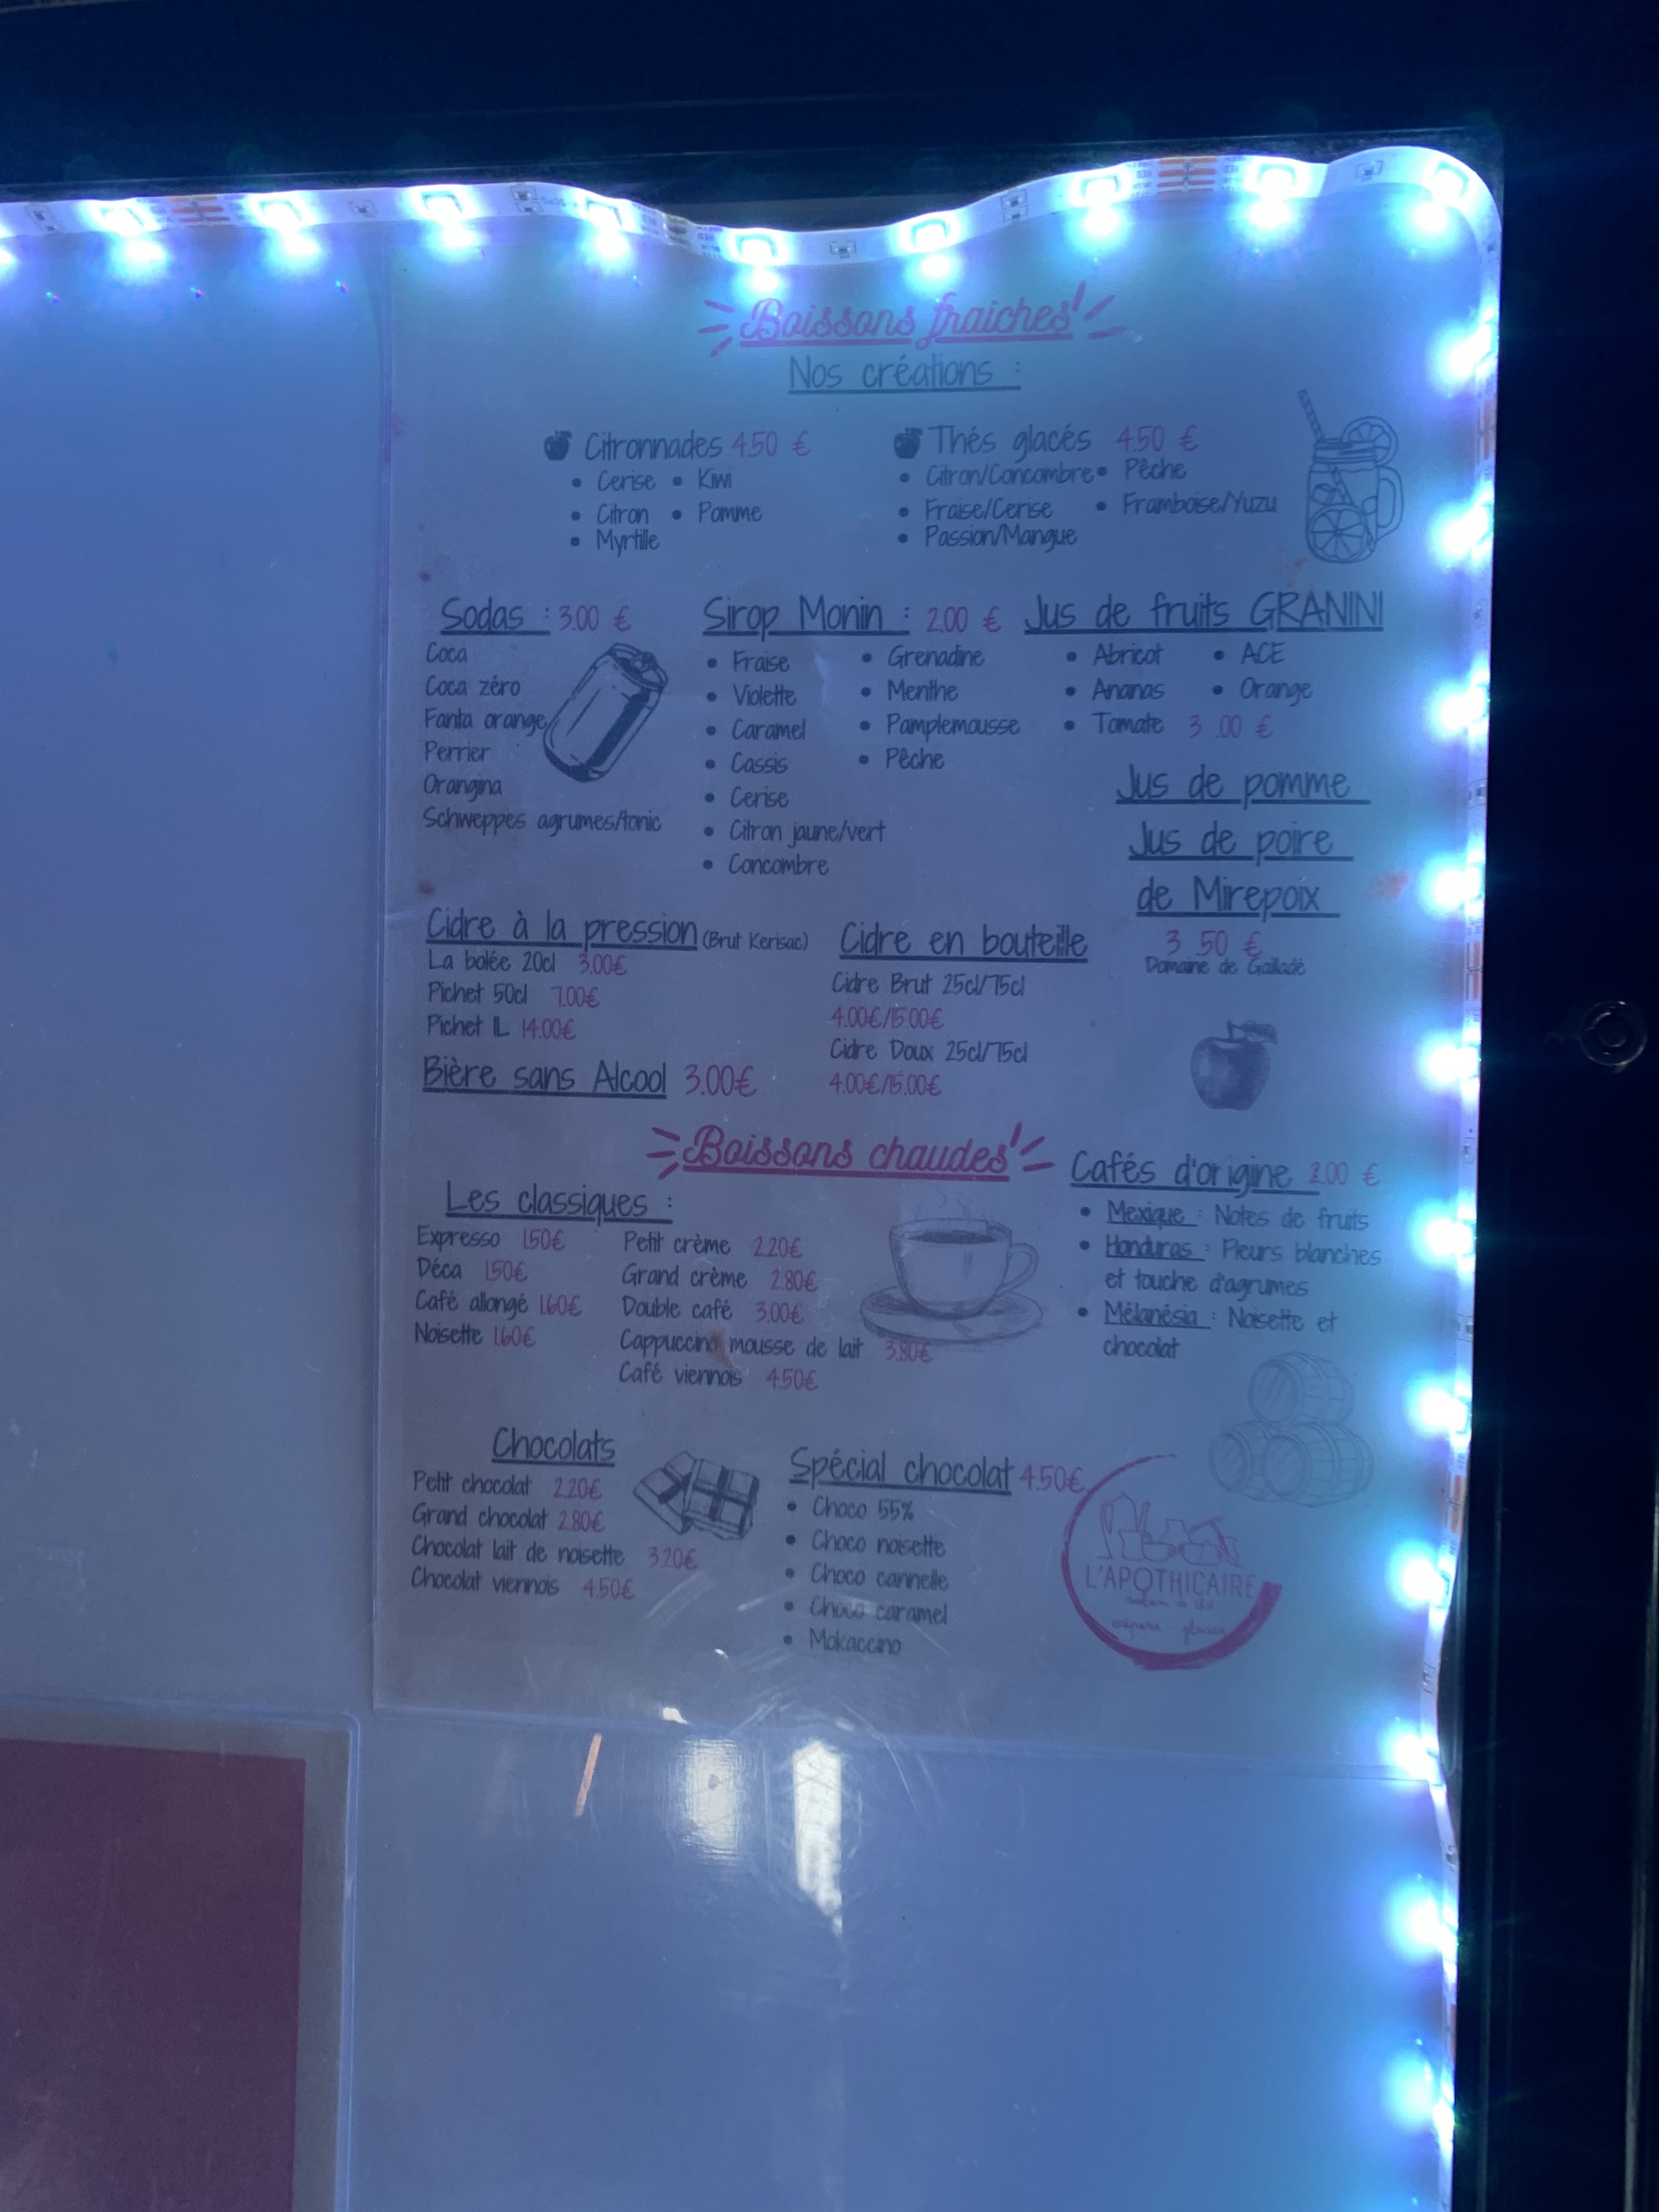 Boissons fraiches
Nos créations :
Citronnades 4.50 €
• Cerise • Kiwi
• Citron • Pomme
• Myrtille
Thés glacés 4.50 €
• Citron/Concombre • Pêche
• Fraise/Cerise • Framboise/Yuzu
• Passion/Mangue
Sodas : 3.00 €
Coca
Coca zéro
Fanta orange
Perrier
Orangina
Schweppes agrumes/tonic
Sirop Monin : 2.00 €
• Fraise • Grenadine
• Violette • Menthe
• Caramel • Pamplemousse
• Cassis • Pêche
• Cerise
• Citron jaune/vert
• Concombre
Jus de fruits GRANINI
• Abricot • ACE
• Ananas • Orange
• Tomate 3 .00 €
Jus de pomme
Jus de poire
de Mirepoix
3 50 €
Domaine de Gailladé
Cidre à la pression (Brut Kerisac)
La bolée 20cl 3.00€
Pichet 50cl 7.00€
Pichet 1L 14.00€
Bière sans Alcool 3.00€
Cidre en bouteille
Cidre Brut 25cl/75cl
4.00€/15.00€
Cidre Doux 25cl/75cl
4.00€/15.00€
Boissons chaudes
Les classiques :
Expresso 1.50€
Déca 1.50€
Café allongé 1.60€
Noisette 1.60€
Petit crème 2.20€
Grand crème 2.80€
Double café 3.00€
Cappuccino mousse de lait 3.80€
Café viennois 4.50€
Cafés d'origine 2.00 €
• Mexique : Notes de fruits
• Honduras : Fleurs blanches
et touche d'agrumes
• Mélanésia : Noisette et
chocolat
Chocolats
Petit chocolat 2.20€
Grand chocolat 2.80€
Chocolat lait de noisette 3.20€
Chocolat viennois 4.50€
Spécial chocolat 4.50€
• Choco 55%
• Choco noisette
• Choco cannelle
• Choco caramel
• Mokaccino
L'APOTHICAIRE
salon de thé
crêperie - glacier